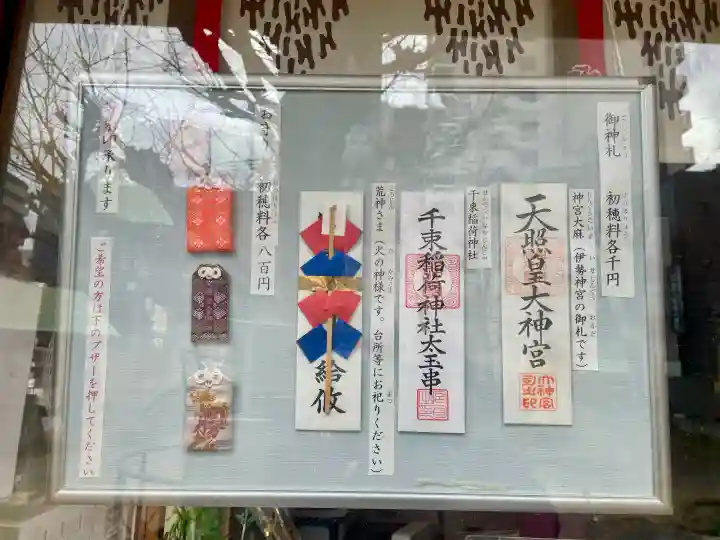 御神札 初穂料各千円
神宮大麻（伊勢神宮の御札です）
天照皇大神宮
千束稲荷神社
千束稲荷神社太玉串
荒神さま（火の神様です。台所等にお祀りください）
給攸
初穂料各八百円
承ります
ご希望の方は下のブザーを押してください